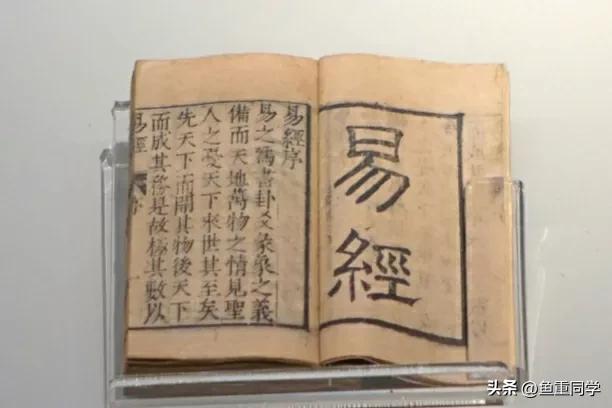 易經
易經序
易之爲書卦爻彖象之義
備而天地萬物之情見聖
人之憂天下來世其至矣
先天下而開其物後天下
而成其務是故極其數以
易經 序
头条 @鱼重同学